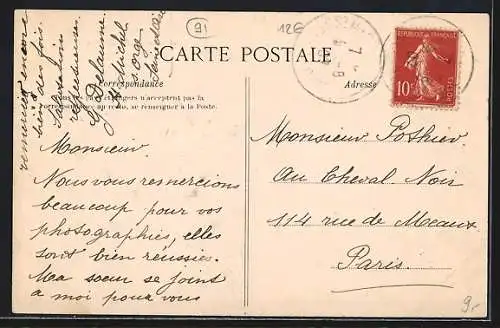 91
12E
CARTE POSTALE
Correspondance
Adresse
RÉPUBLIQUE FRANÇAISE
10
POSTES
Tous les pays étrangers n'acceptent pas la
correspondance au recto, se renseigner à la Poste.
Monsieur.
Nous vous remercions
beaucoup pour vos
photographies, elles
sont bien réussies.
Ma soeur se joint
a moi pour vous
remercier encore
bien des fois
Salutation
G Delaunne
St Michel
s. orge
Monsieur Pothier
Au Cheval Noir
114 rue de Meaux
Paris.
9.-